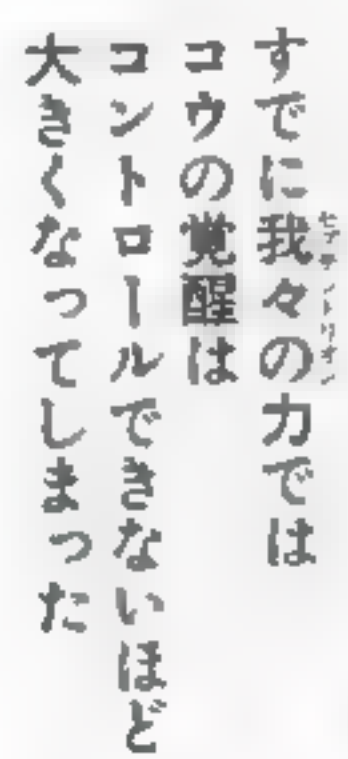 すでに我々の力では
コウの覚醒は
コントロールできないほど
大きくなってしまった